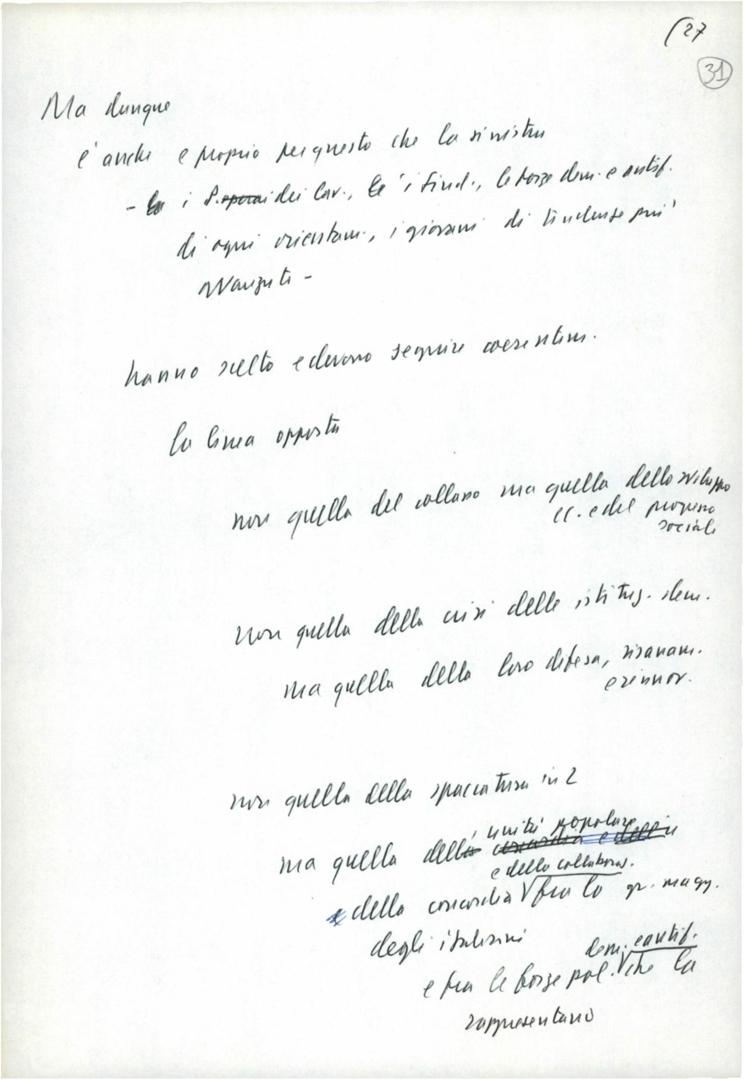 (27
31
Ma dunque
è anche e proprio per questo che la sinistra
- i P. dei lav., i sind., le forze dem. e antif.
di ogni orientam., i giovani di tendenze più
avanzate -
hanno scelto e devono seguire coerentem.
la linea opposta
non quella del collasso ma quella dello sviluppo
ec. e del progresso
sociale
non quella della crisi delle istituz. dem.
ma quella della loro difesa, risanam.
e rinnov.
non quella della spaccatura in 2
ma quella dell' unità popolare
e della collaboraz.
della concordia fra la gr. magg.
degli italiani
dem. e antif.
e fra le forze pol. che la
rappresentano